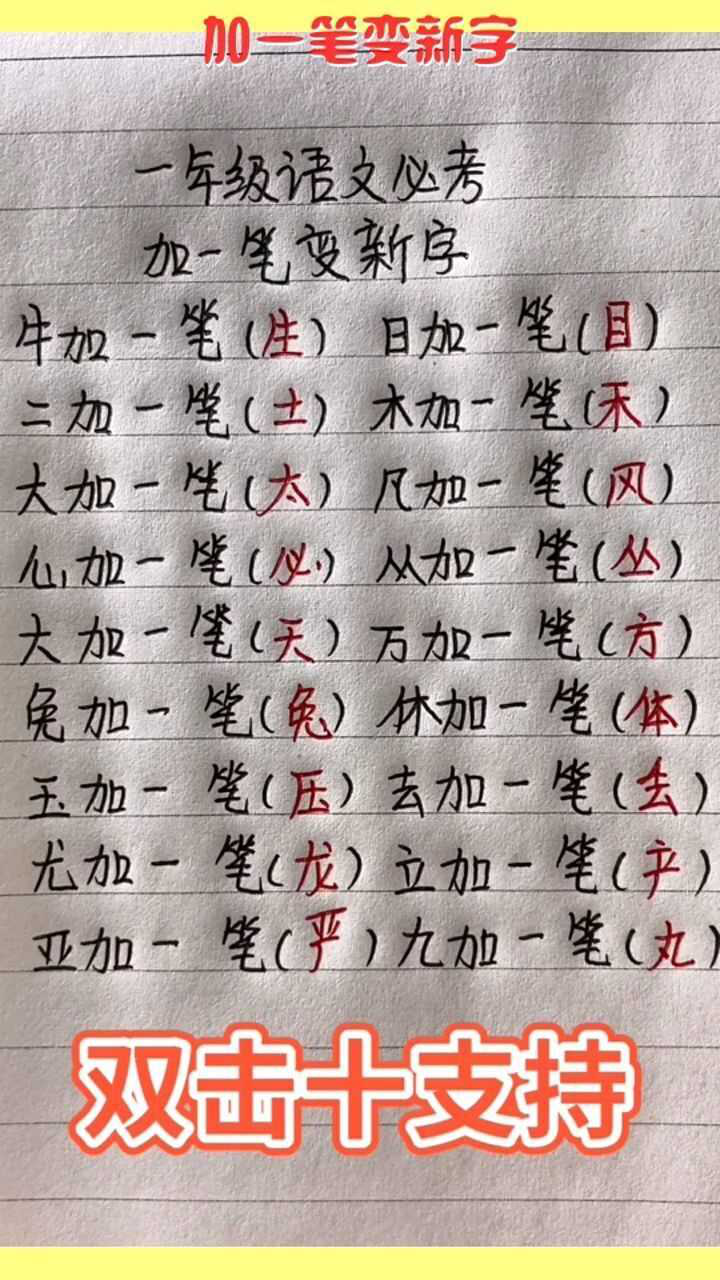 加一笔变新字
一年级语文必考
加一笔变新字
牛加一笔(生) 日加一笔(目)
二加一笔(土) 木加一笔(禾)
大加一笔(太) 凡加一笔(风)
心加一笔(必) 从加一笔(丛)
大加一笔(天) 万加一笔(方)
免加一笔(兔) 休加一笔(体)
玉加一笔(压) 去加一笔(丢)
尤加一笔(龙) 立加一笔(产)
亚加一笔(严) 九加一笔(丸)
双击十支持